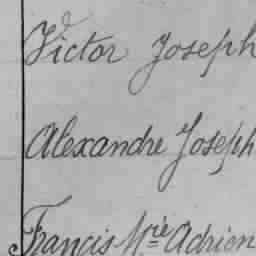 Victor Joseph
Alexandre Joseph
Francis M.rie Adrien